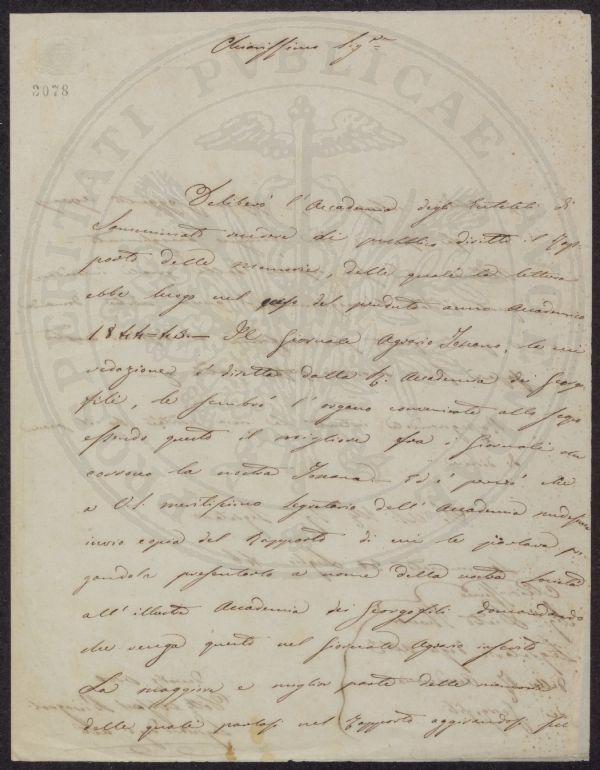 Chiarissimo Sig.re
3078
PROSPERITATI PVBLICAE
Deliberò l'Accademia degli Euteleti di
Sanminiato rendere di pubblico diritto il Rap-
porto delle memorie, delle quali la lettura
ebbe luogo nel corso del perduto anno Accademico
1844=43.— Il Giornale Agrario Toscano, la cui
redazione è diretta dalla R. Accademia dei Georgo-
fili, le sembrò l'organo conveniente allo scopo
essendo questo il migliore fra i Giornali che
corrono la nostra Toscana. Ed è perciò che
a V.S. meritissimo Segretario dell'Accademia medesima
invio copia del Rapporto di cui le parlava pre-
gandola presentarlo a nome della nostra Società
all'illustre Accademia dei Georgofili domandando
che venga questo nel Giornale Agrario inserito.
La maggiore e miglior parte delle memorie
delle quali parlasi nel Rapporto aggirandosi su